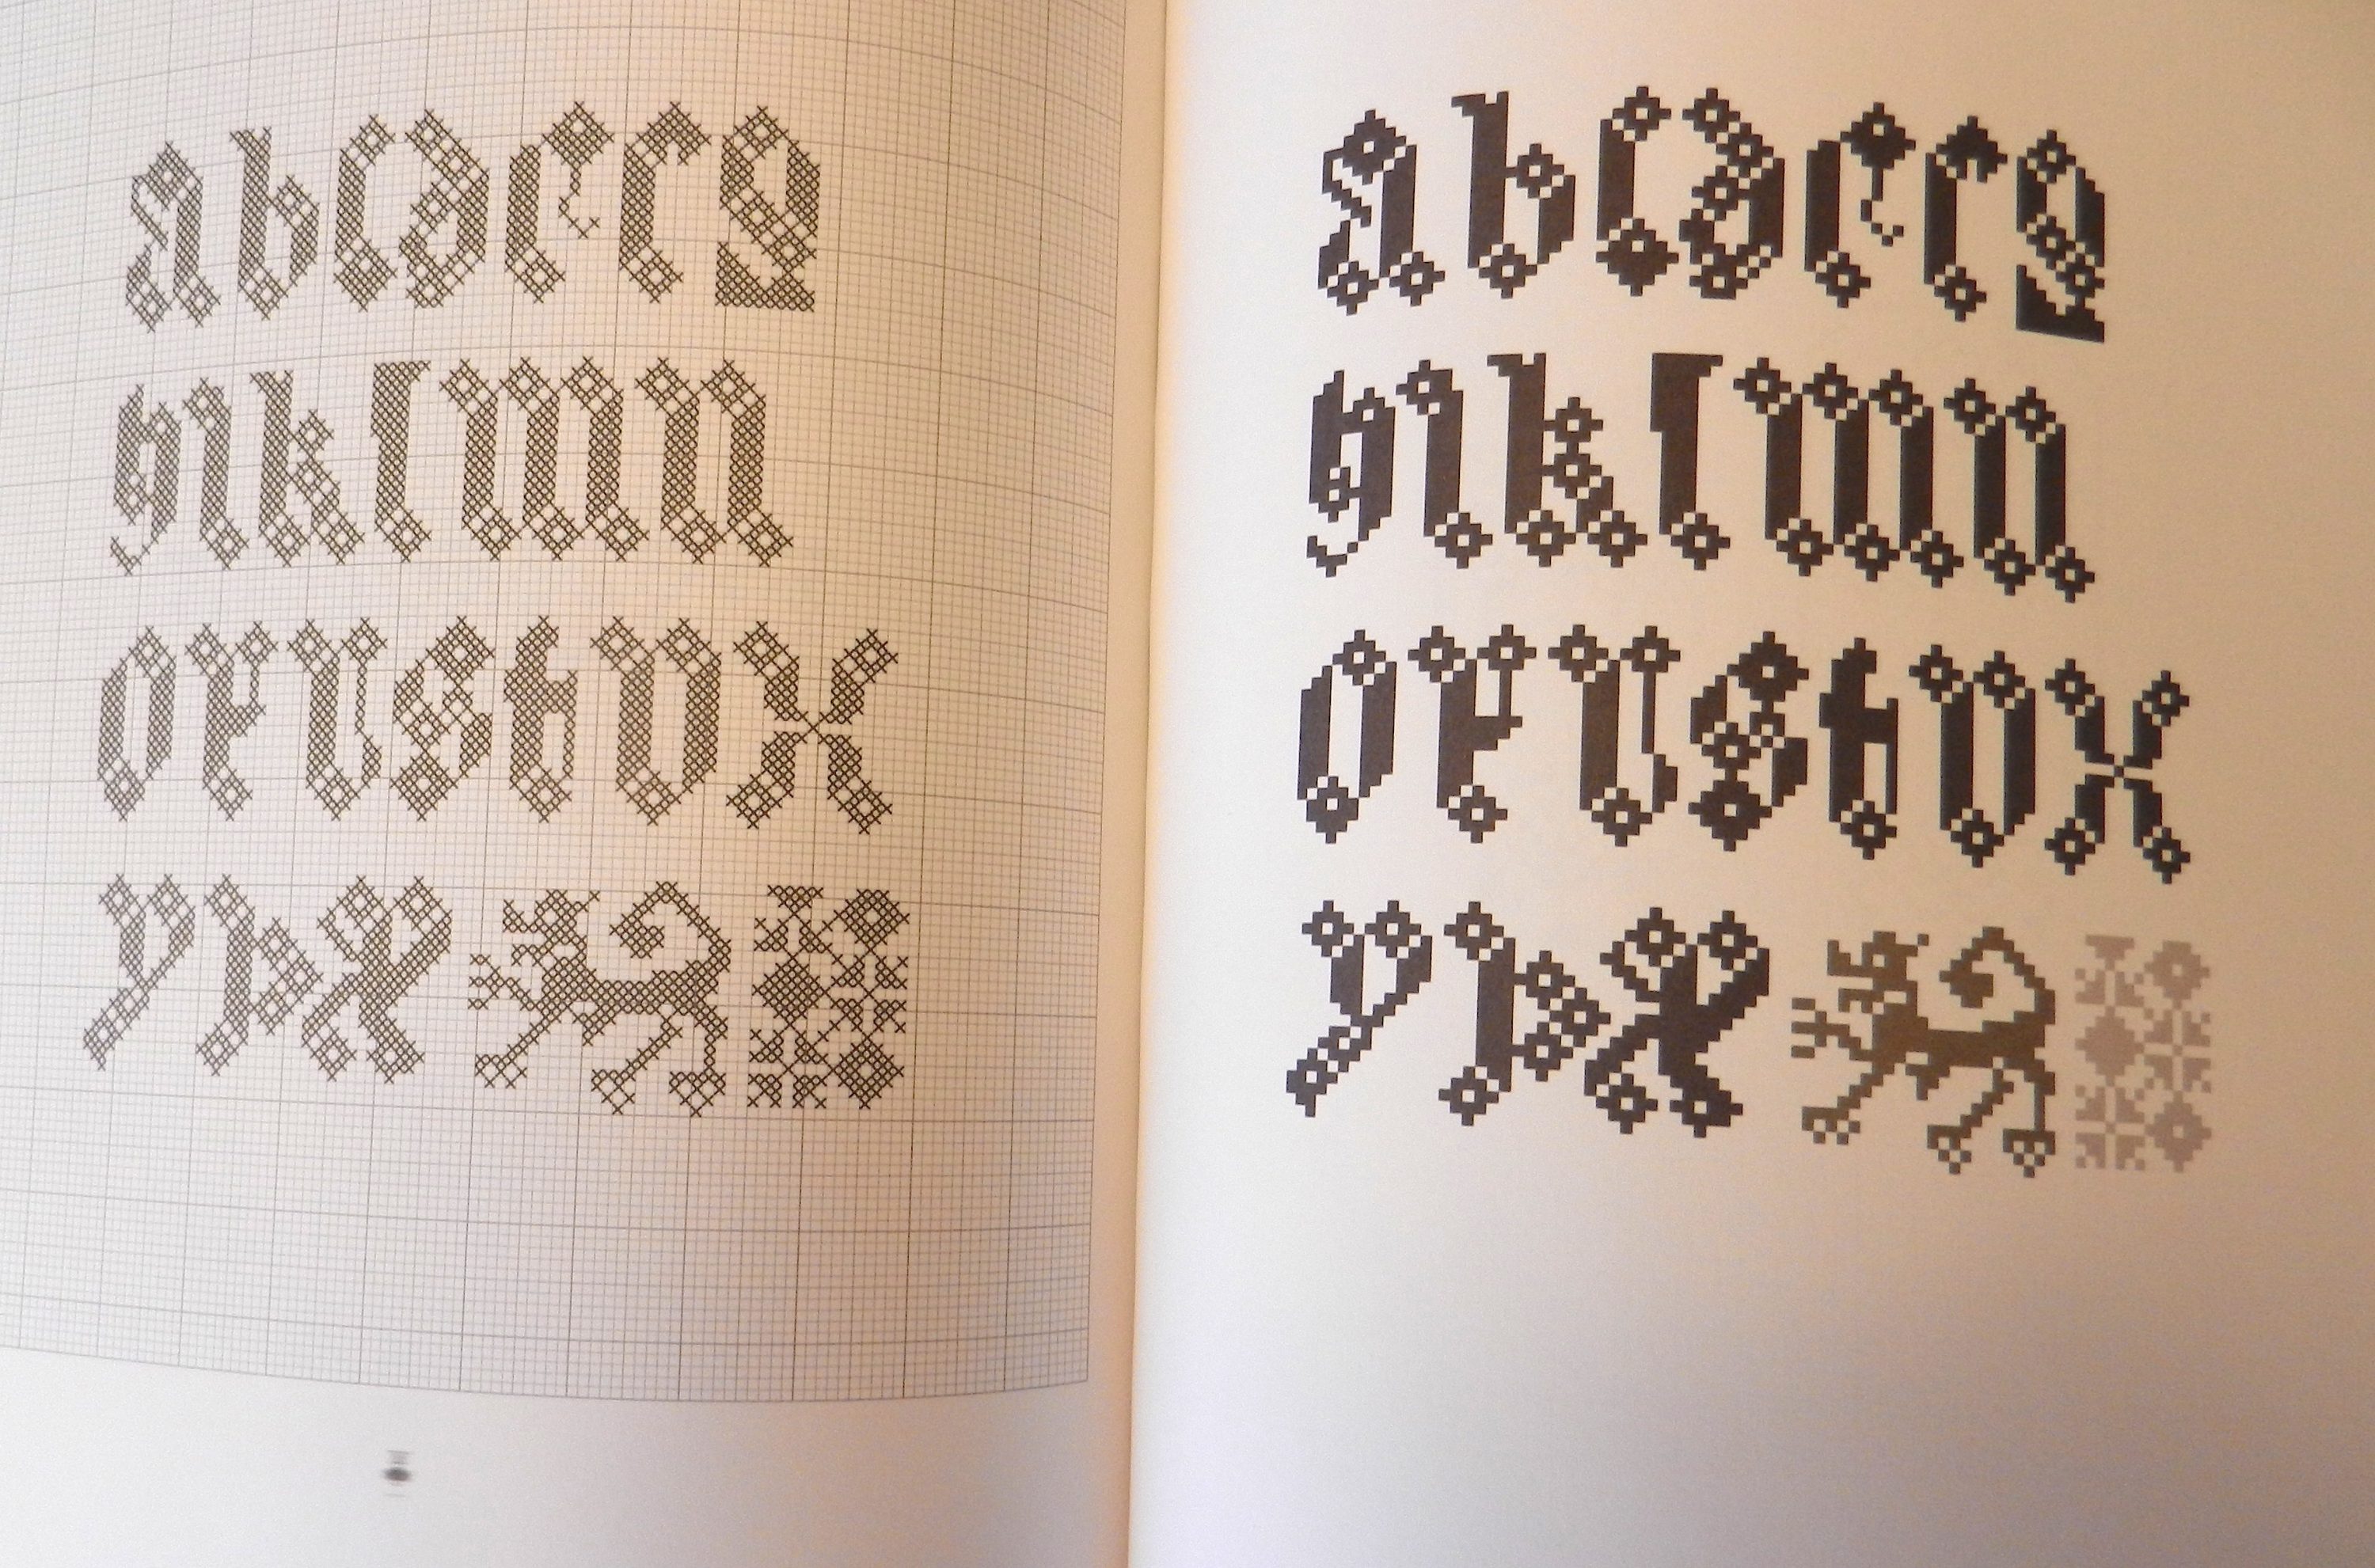 a b c d e f g
h i k l m n
o p r s t v x
y þ æ
a b c d e f g
h i k l m n
o p r s t v x
y þ æ